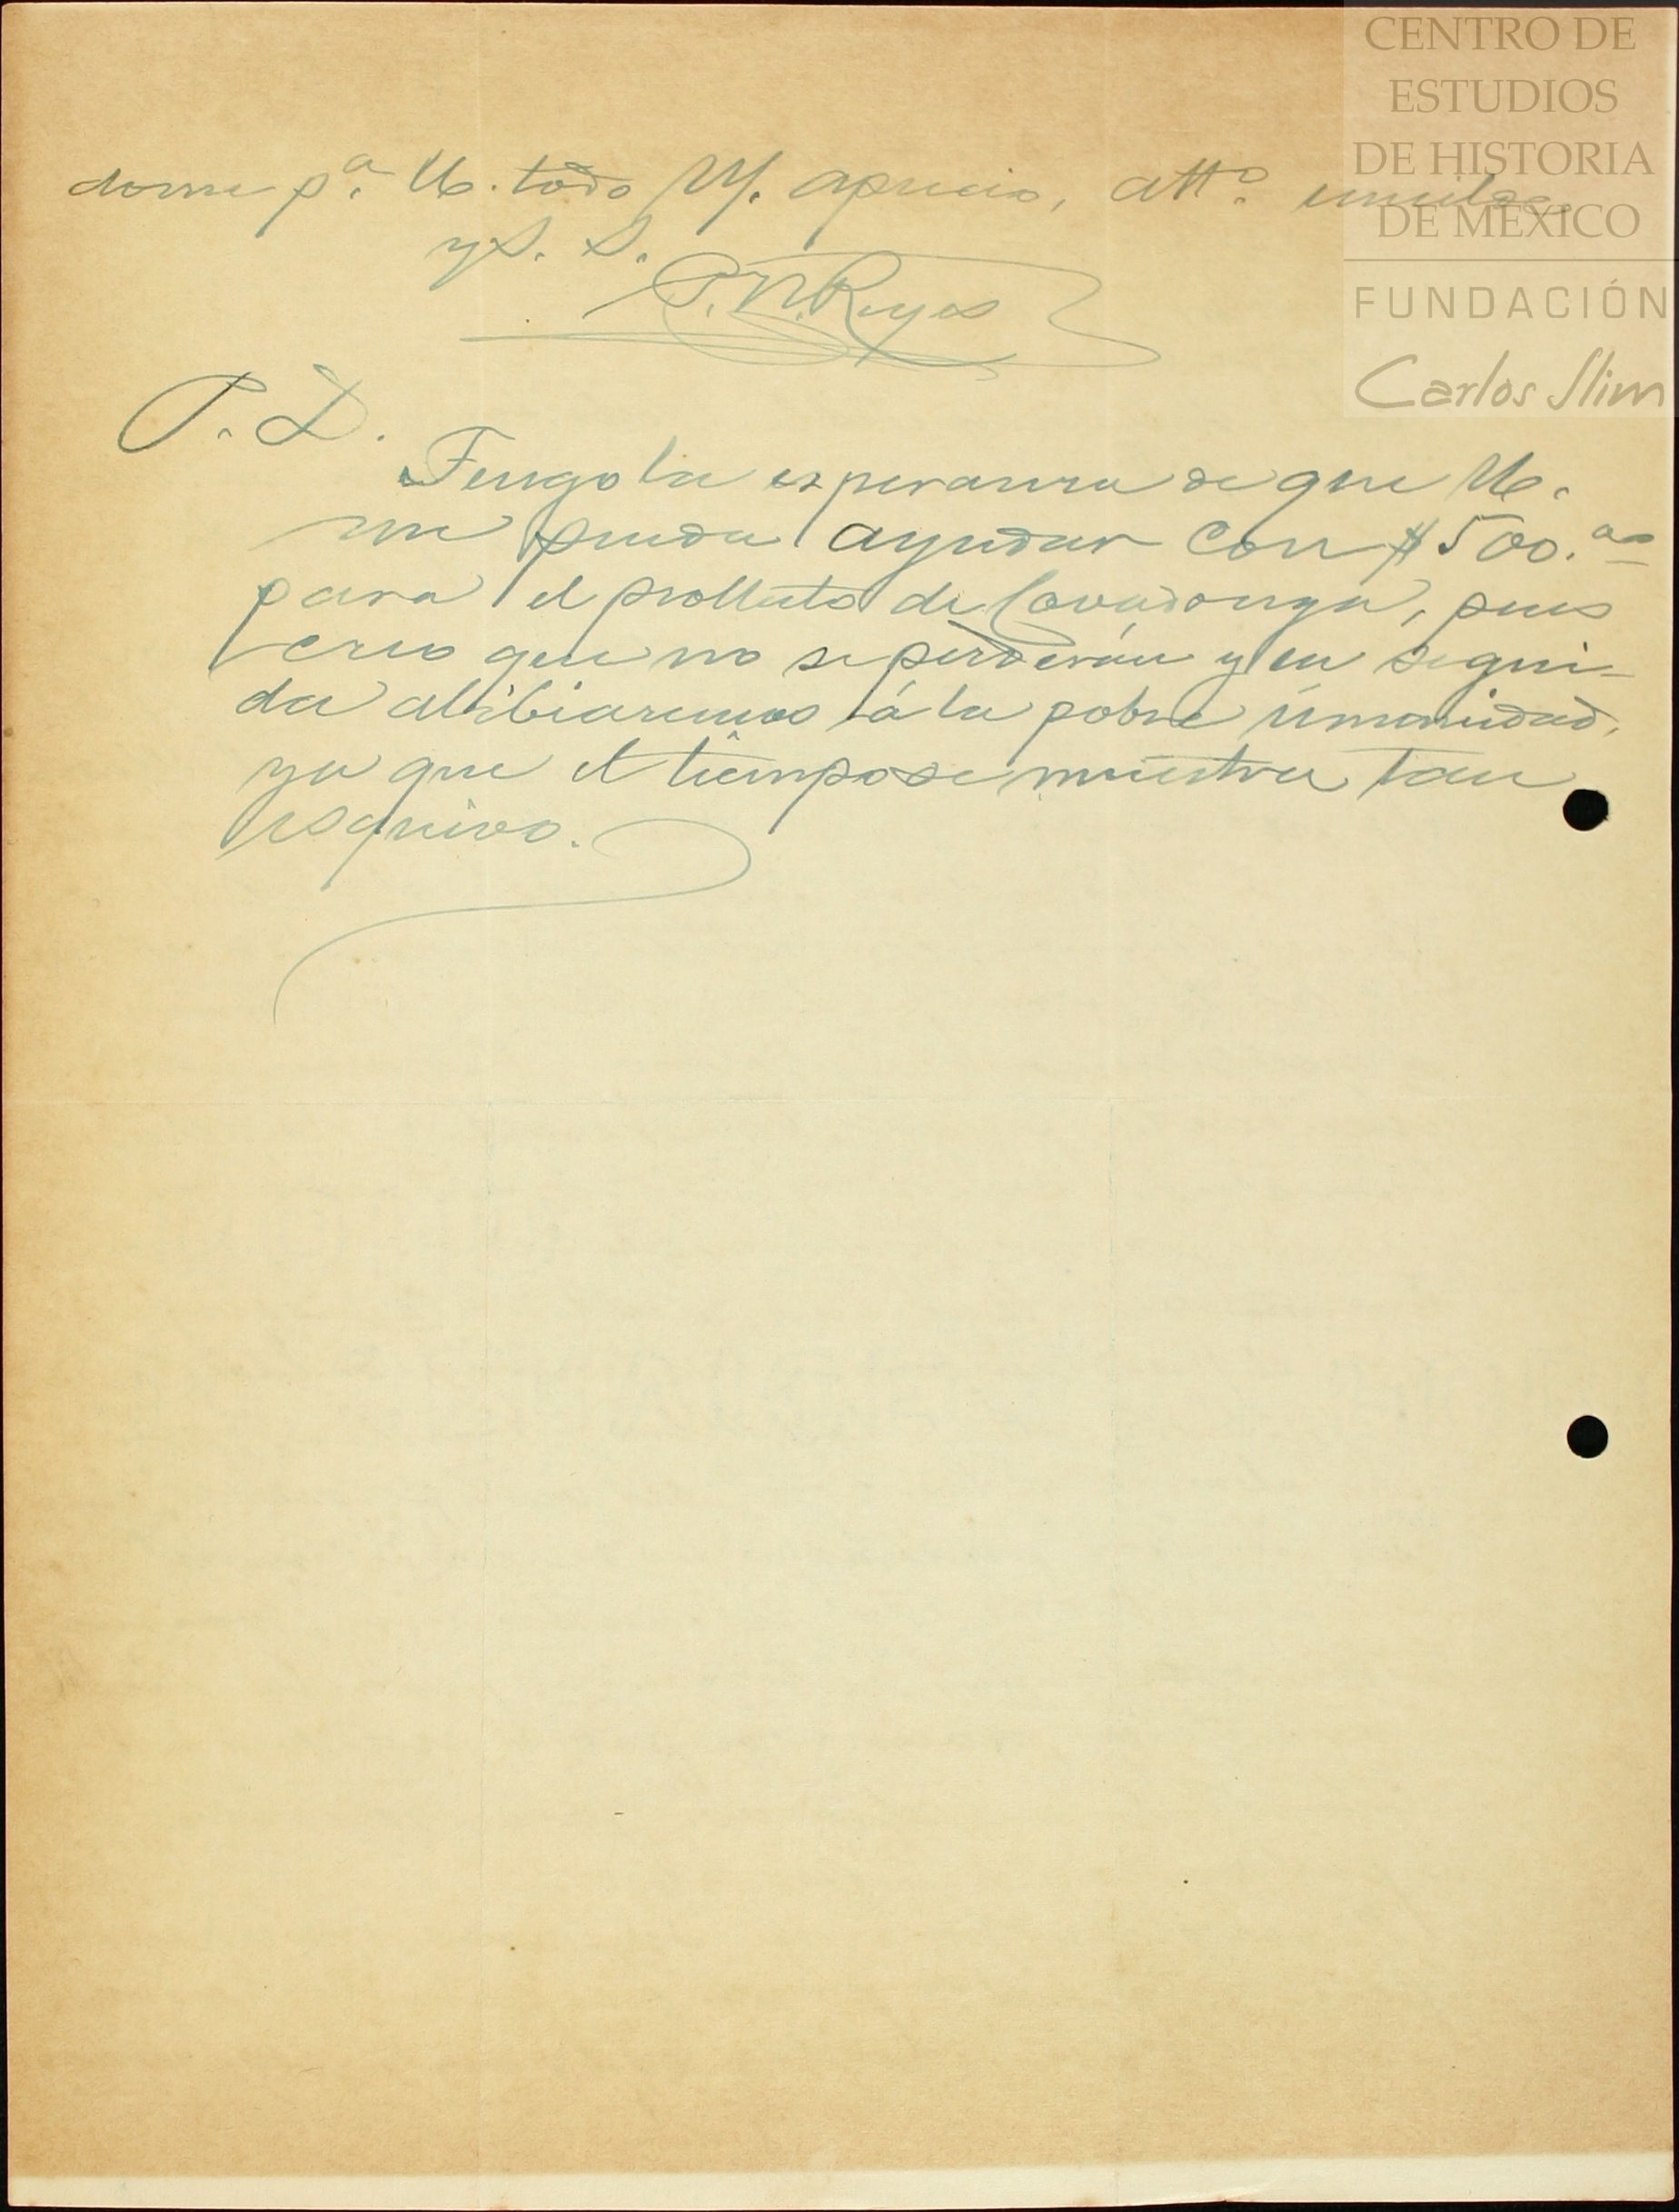 dome pª. U. todo M. aprecio, attº. umilde
y S. S.
P. N. Reyes
P. D.
Tengo la esperanza de que U.
me pueda ayudar con $500.ºº
para el prollecto de Covadonga, pues
creo que no se perderán y en segui-
da alibiaremos á la pobre úmanidad,
ya que el tiempo se muestra tan
esquivo.
CENTRO DE
ESTUDIOS
DE HISTORIA
DE MÉXICO
FUNDACIÓN
Carlos Slim